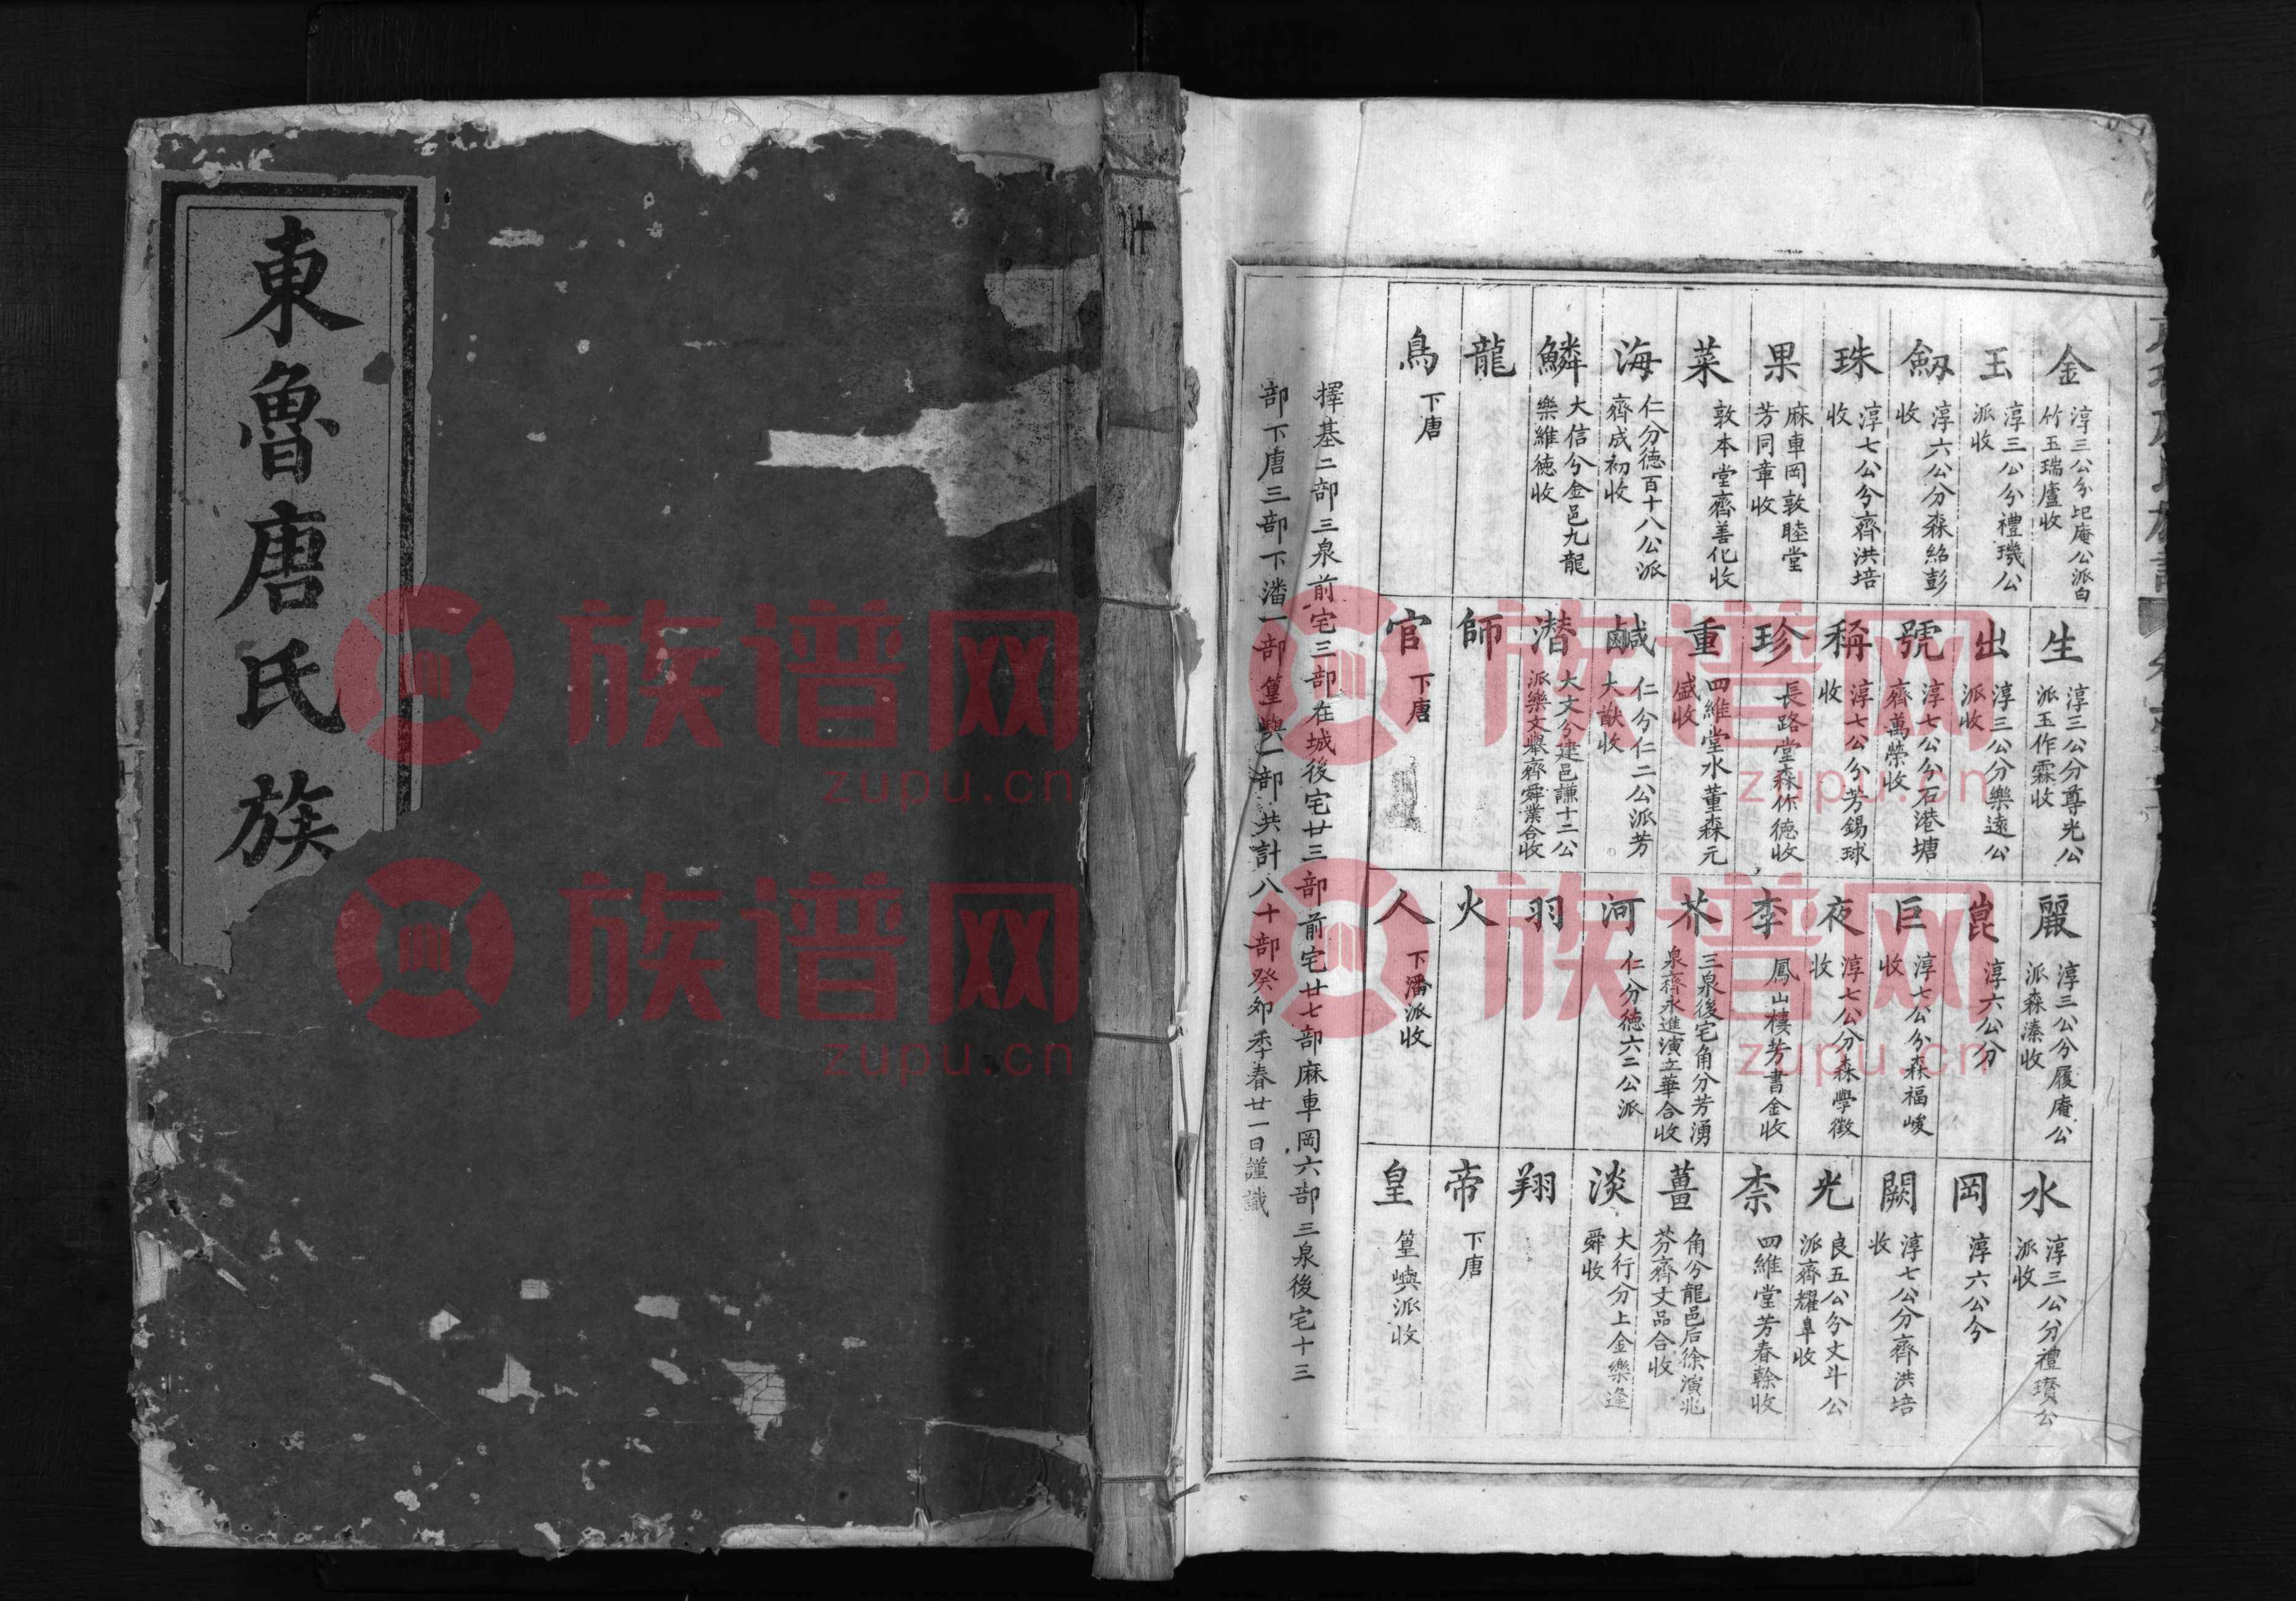 東魯唐氏族
金 淳三公分圯庵公派白竹玉瑞廬收
生 淳三公分尊光公派玉作霖收
麗 淳三公分履庵公派森溱收
水 淳三公分禮瓚公派收
玉 淳三公分禮璣公派收
出 淳三公分樂遠公派收
崑 淳六公分
岡 淳六公分
劔 淳六公分森紹彭收
號 淳七公分石港塘齊萬榮收
巨 淳七公分森福峻收
闕 淳七公分齊洪培收
珠 淳七公分齊洪培收
稱 淳七公分芳錫球收
夜 淳七公分森學徵收
光 良五公分文斗公派齊耀阜收
果 麻車岡敦睦堂芳同章收
珍 長路堂森作德收
李 鳳山樓芳書金收
柰 四維堂芳春榦收
菜 敦本堂齊善化收
重 四維堂水董森元盛收
芥 三泉後宅角分芳湧泉齊永進演立華合收
薑 角分龍邑后徐演兆芬齊文品合收
海 仁分德百十八公派齊成初收
鹹 仁分仁二公派芳大猷收
河 仁分德六二公派
淡 大行分上金樂逢舜收
鱗 大信分金邑九龍樂維德收
潛 大文分建邑謙十二公派樂文舉齊舜業合收
羽
翔
龍
師
火
帝 下唐
鳥 下唐
官 下唐
人 下潘派收
皇 篁嶼派收
擇基二部三泉前宅三部在城後宅廿三部前宅廿七部麻車岡六部三泉後宅十三
部下唐三部下潘一部篁嶼一部共計八十部癸卯季春廿一日謹識
族谱网
zupu.cn
族谱网
zupu.cn
族谱网
zupu.cn
族谱网
zupu.cn